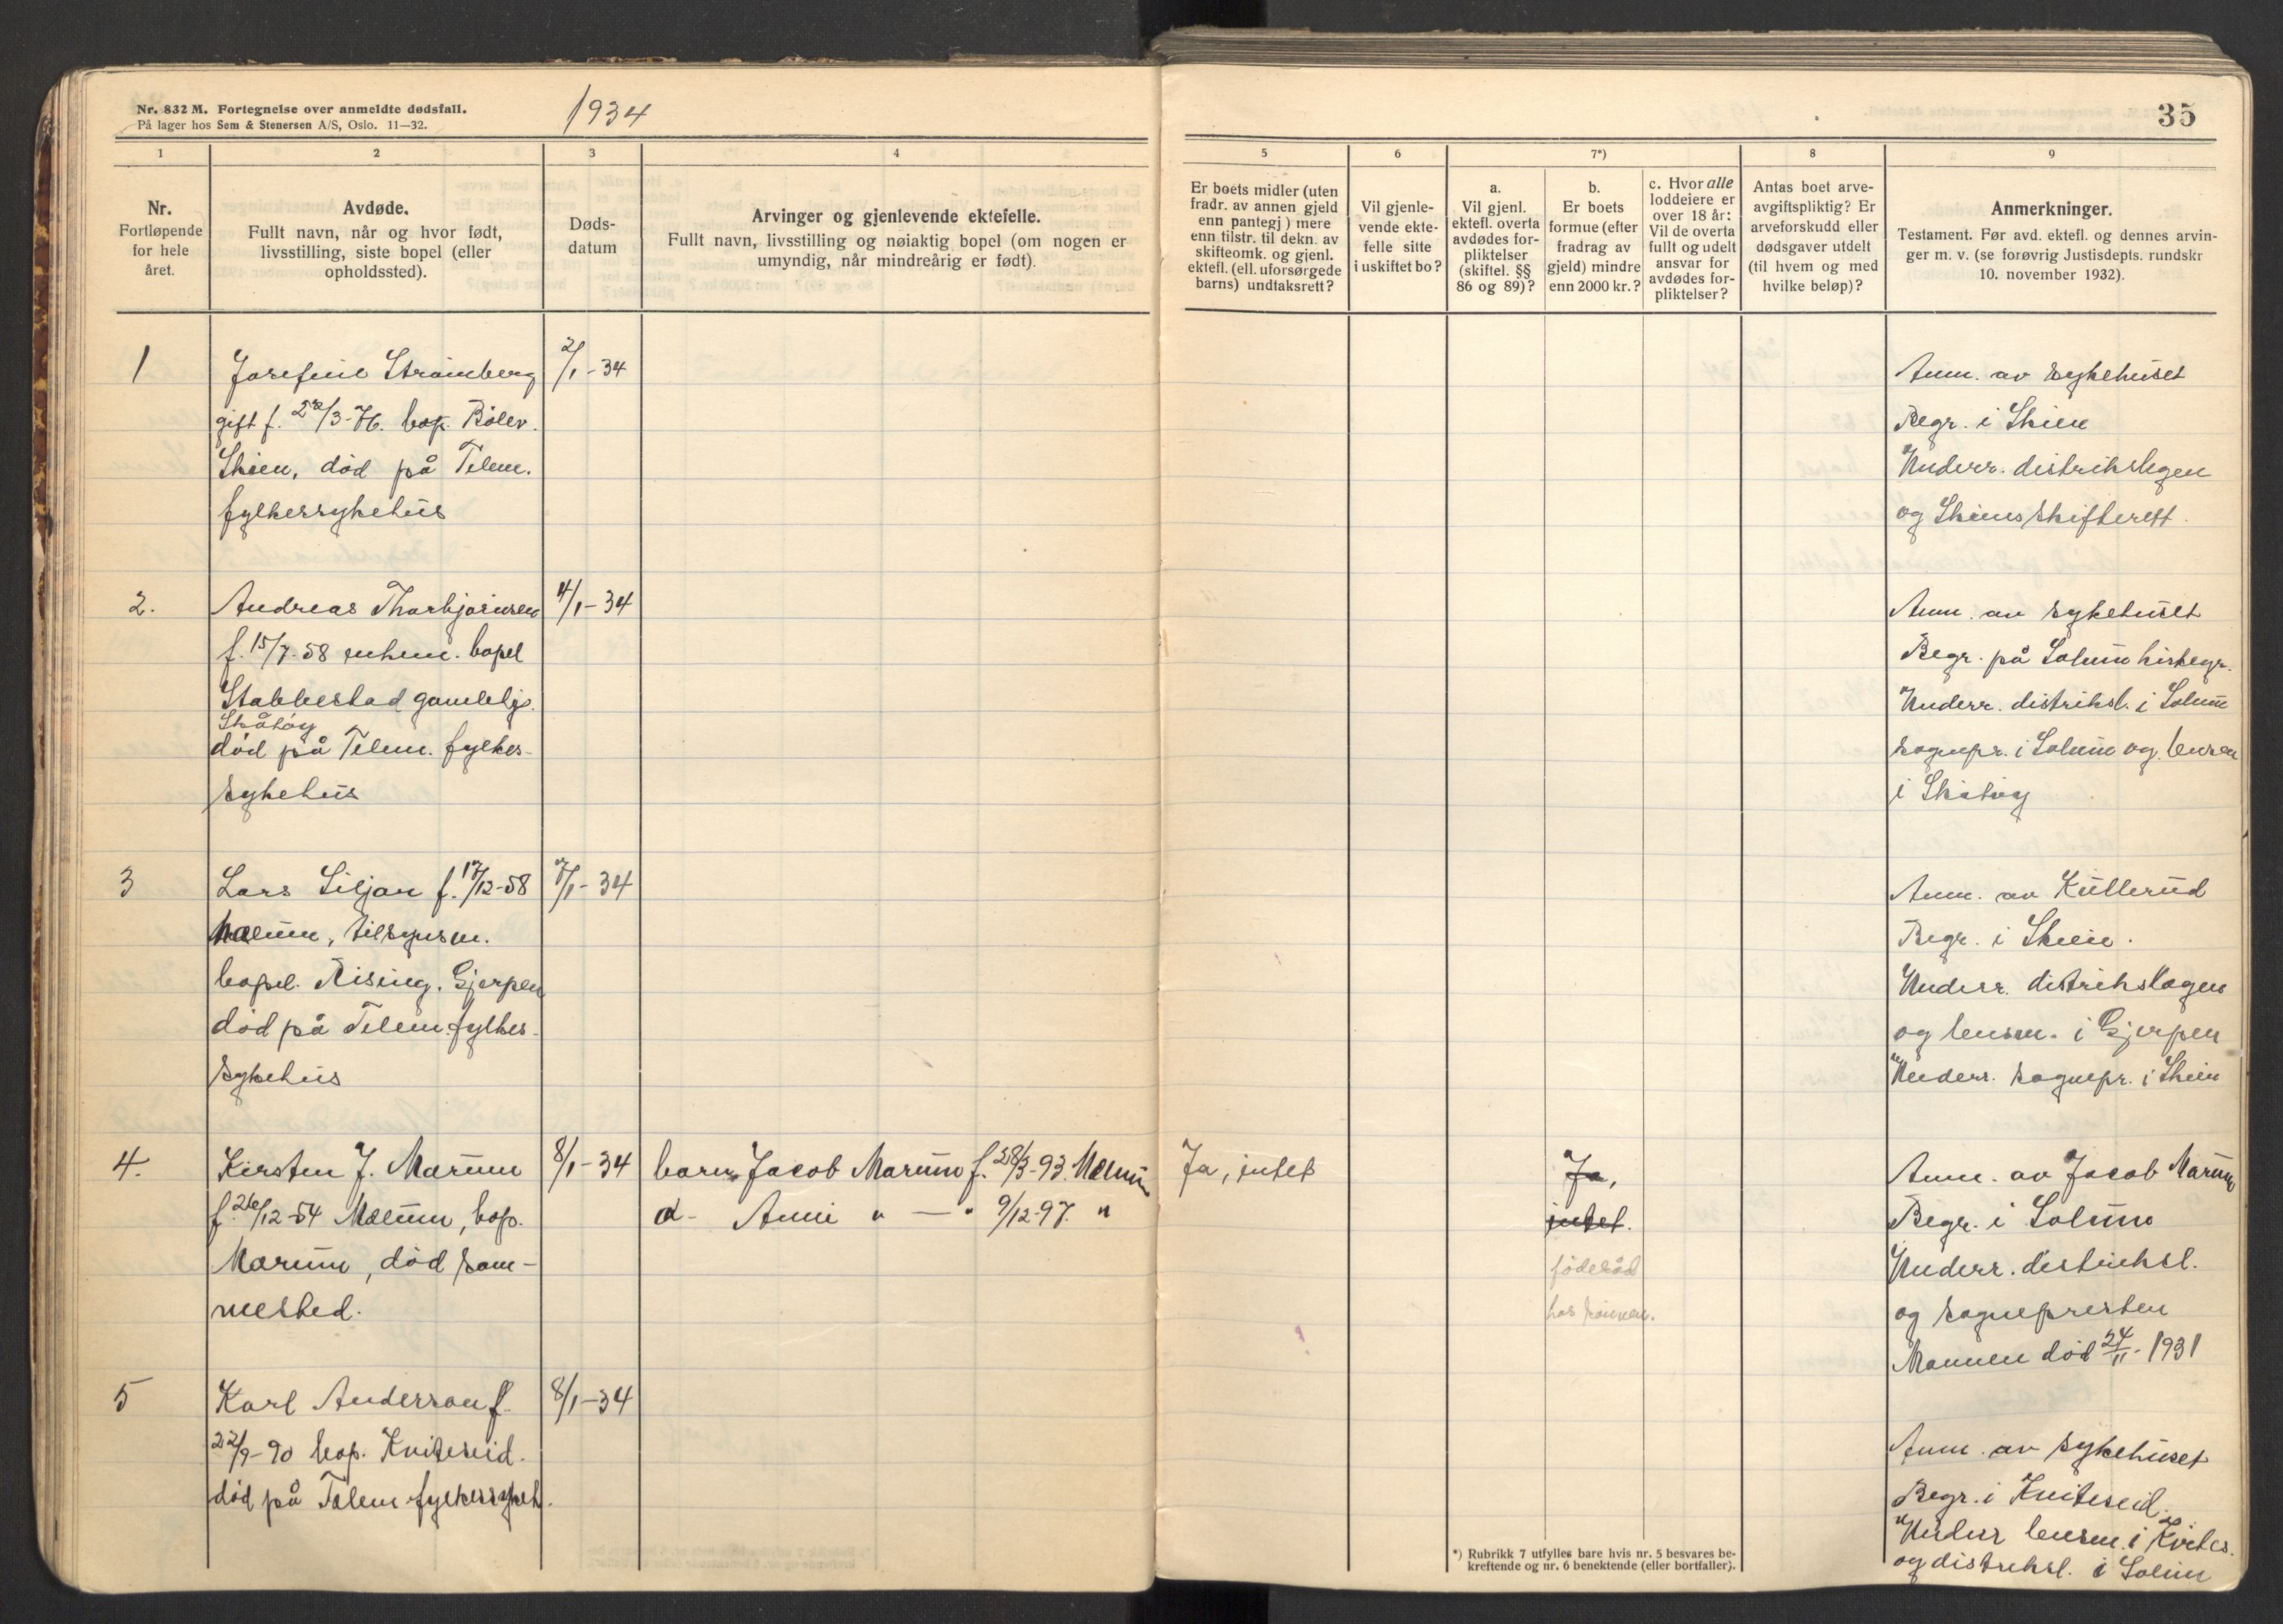 Nr. 832 M. Fortegnelse over anmeldte dødsfall.
På lager hos Sem & Stenersen A/S, Oslo. 11—32.
1934
1
2
3
4
Nr.
Fortløpende
for hele
året.
Avdøde.
Fullt navn, når og hvor født,
livsstilling, siste bopel (eller
opholdssted).
Døds-
datum
Arvinger og gjenlevende ektefelle.
Fullt navn, livsstilling og nøiaktig bopel (om nogen er
umyndig, når mindreårig er født).
1
Josefine Strømberg
2/1-34
gift f. /3-76. bop. Bölev.
Skien, død på Telem.
fylkessykehus
2.
Andreas Thorbjørnsen
4/1-34
f. 15/7-58 enkem. bopel
Stabbestad gamlehj.
Skåtøy
död på Telem. fylkes-
sykehus
3
Lars Siljan f. 17/12-58
7/1-34
Mælum, tilsynsm.
bopel Rising. Gjerpen
død på Telem. fylkes-
sykehus
4.
Kirsten J. Marum
8/1-34
barn Jacob Marum f. 28/3-93. Mælum
f. 26/12-54 Mælum, bop.
d- Anni " — " 9/12-97. "
Marum, död sam-
mested.
5
Karl Anderson f.
8/1-34
22/9-90 bop. Kviteseid.
död på Telem fylkessykeh.
35
5
6
7*)
8
9
Er boets midler (uten
fradr. av annen gjeld
enn pantegj) mere
enn tilstr. til dekn. av
skifteomk. og gjenl.
ektefl. (ell. uforsørgede
barns) undtaksrett?
Vil gjenle-
vende ekte-
felle sitte
i uskiftet bo?
a.
Vil gjenl.
ektefl. overta
avdødes for-
pliktelser
(skiftel. §§
86 og 89)?
b.
Er boets
formue (efter
fradrag av
gjeld) mindre
enn 2000 kr.?
c. Hvor alle
loddeiere er
over 18 år:
Vil de overta
fullt og udelt
ansvar for
avdødes for-
pliktelser?
Antas boet arve-
avgiftspliktig? Er
arveforskudd eller
dødsgaver utdelt
(til hvem og med
hvilke beløp)?
Anmerkninger.
Testament. Før avd. ektefl. og dennes arvin-
ger m. v. (se forøvrig Justisdepts. rundskr
10. november 1932).
Anm. av sykehuset
Begr. i Skien
Underr. distrikslegen
og Skiens skifterett.
Anm. av sykehuset
Begr. på Solum kirkegr.
Underr. distriksl. i Solum
sognepr. i Solum og lensm
i Skåtøy
Anm. av Kullerud
Begr. i Skien.
Underr. distrikslægen
og lensm. i Gjerpen
Underr. sognepr. i Skien
Ja, intet
Ja,
intet.
föderåd
hos sönnen.
Anm. av Jacob Marum
Begr. i Solum
Underr. distriksl.
og sognepresten
Mannen död 24/11-1931
Anm. av sykehuset
Begr. i Kviteseid.
Underr lensm. i Kvites.
og distriksl. i Solum
*) Rubrikk 7 utfylles bare hvis nr. 5 besvares be-
kreftende og nr. 6 benektende (eller bortfaller).